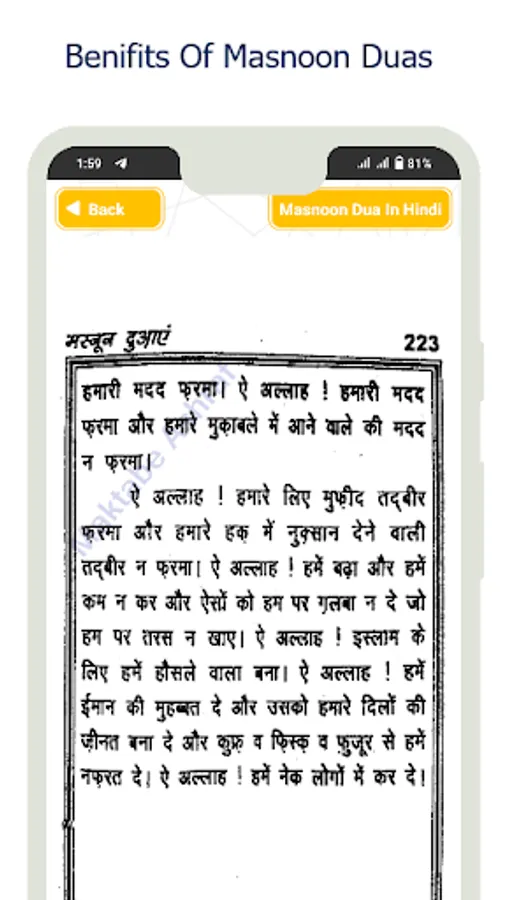 Benifits Of Masnoon Duas
1:59 81%
Back Masnoon Dua In Hindi
मस्नून दुआएं 223
हमारी मदद फ़रमा। ऐ अल्लाह ! हमारी मदद
फ़रमा और हमारे मुक़ाबले में आने वाले की मदद
न फ़रमा।
ऐ अल्लाह ! हमारे लिए मुफ़ीद तद्बीर
फ़रमा और हमारे हक़ में नुक़्सान देने वाली
तद्बीर न फ़रमा। ऐ अल्लाह ! हमें बढ़ा और हमें
कम न कर और ऐसों को हम पर ग़लबा न दे जो
हम पर तरस न खाए। ऐ अल्लाह ! इस्लाम के
लिए हमें हौसले वाला बना। ऐ अल्लाह ! हमें
ईमान की मुहब्बत दे और उसको हमारे दिलों की
ज़ीनत बना दे और कुफ़्र व फ़िस्क़ व फ़ुजूर से हमें
नफ़रत दे। ऐ अल्लाह ! हमें नेक लोगों में कर दे।
Maktabe Ashraf